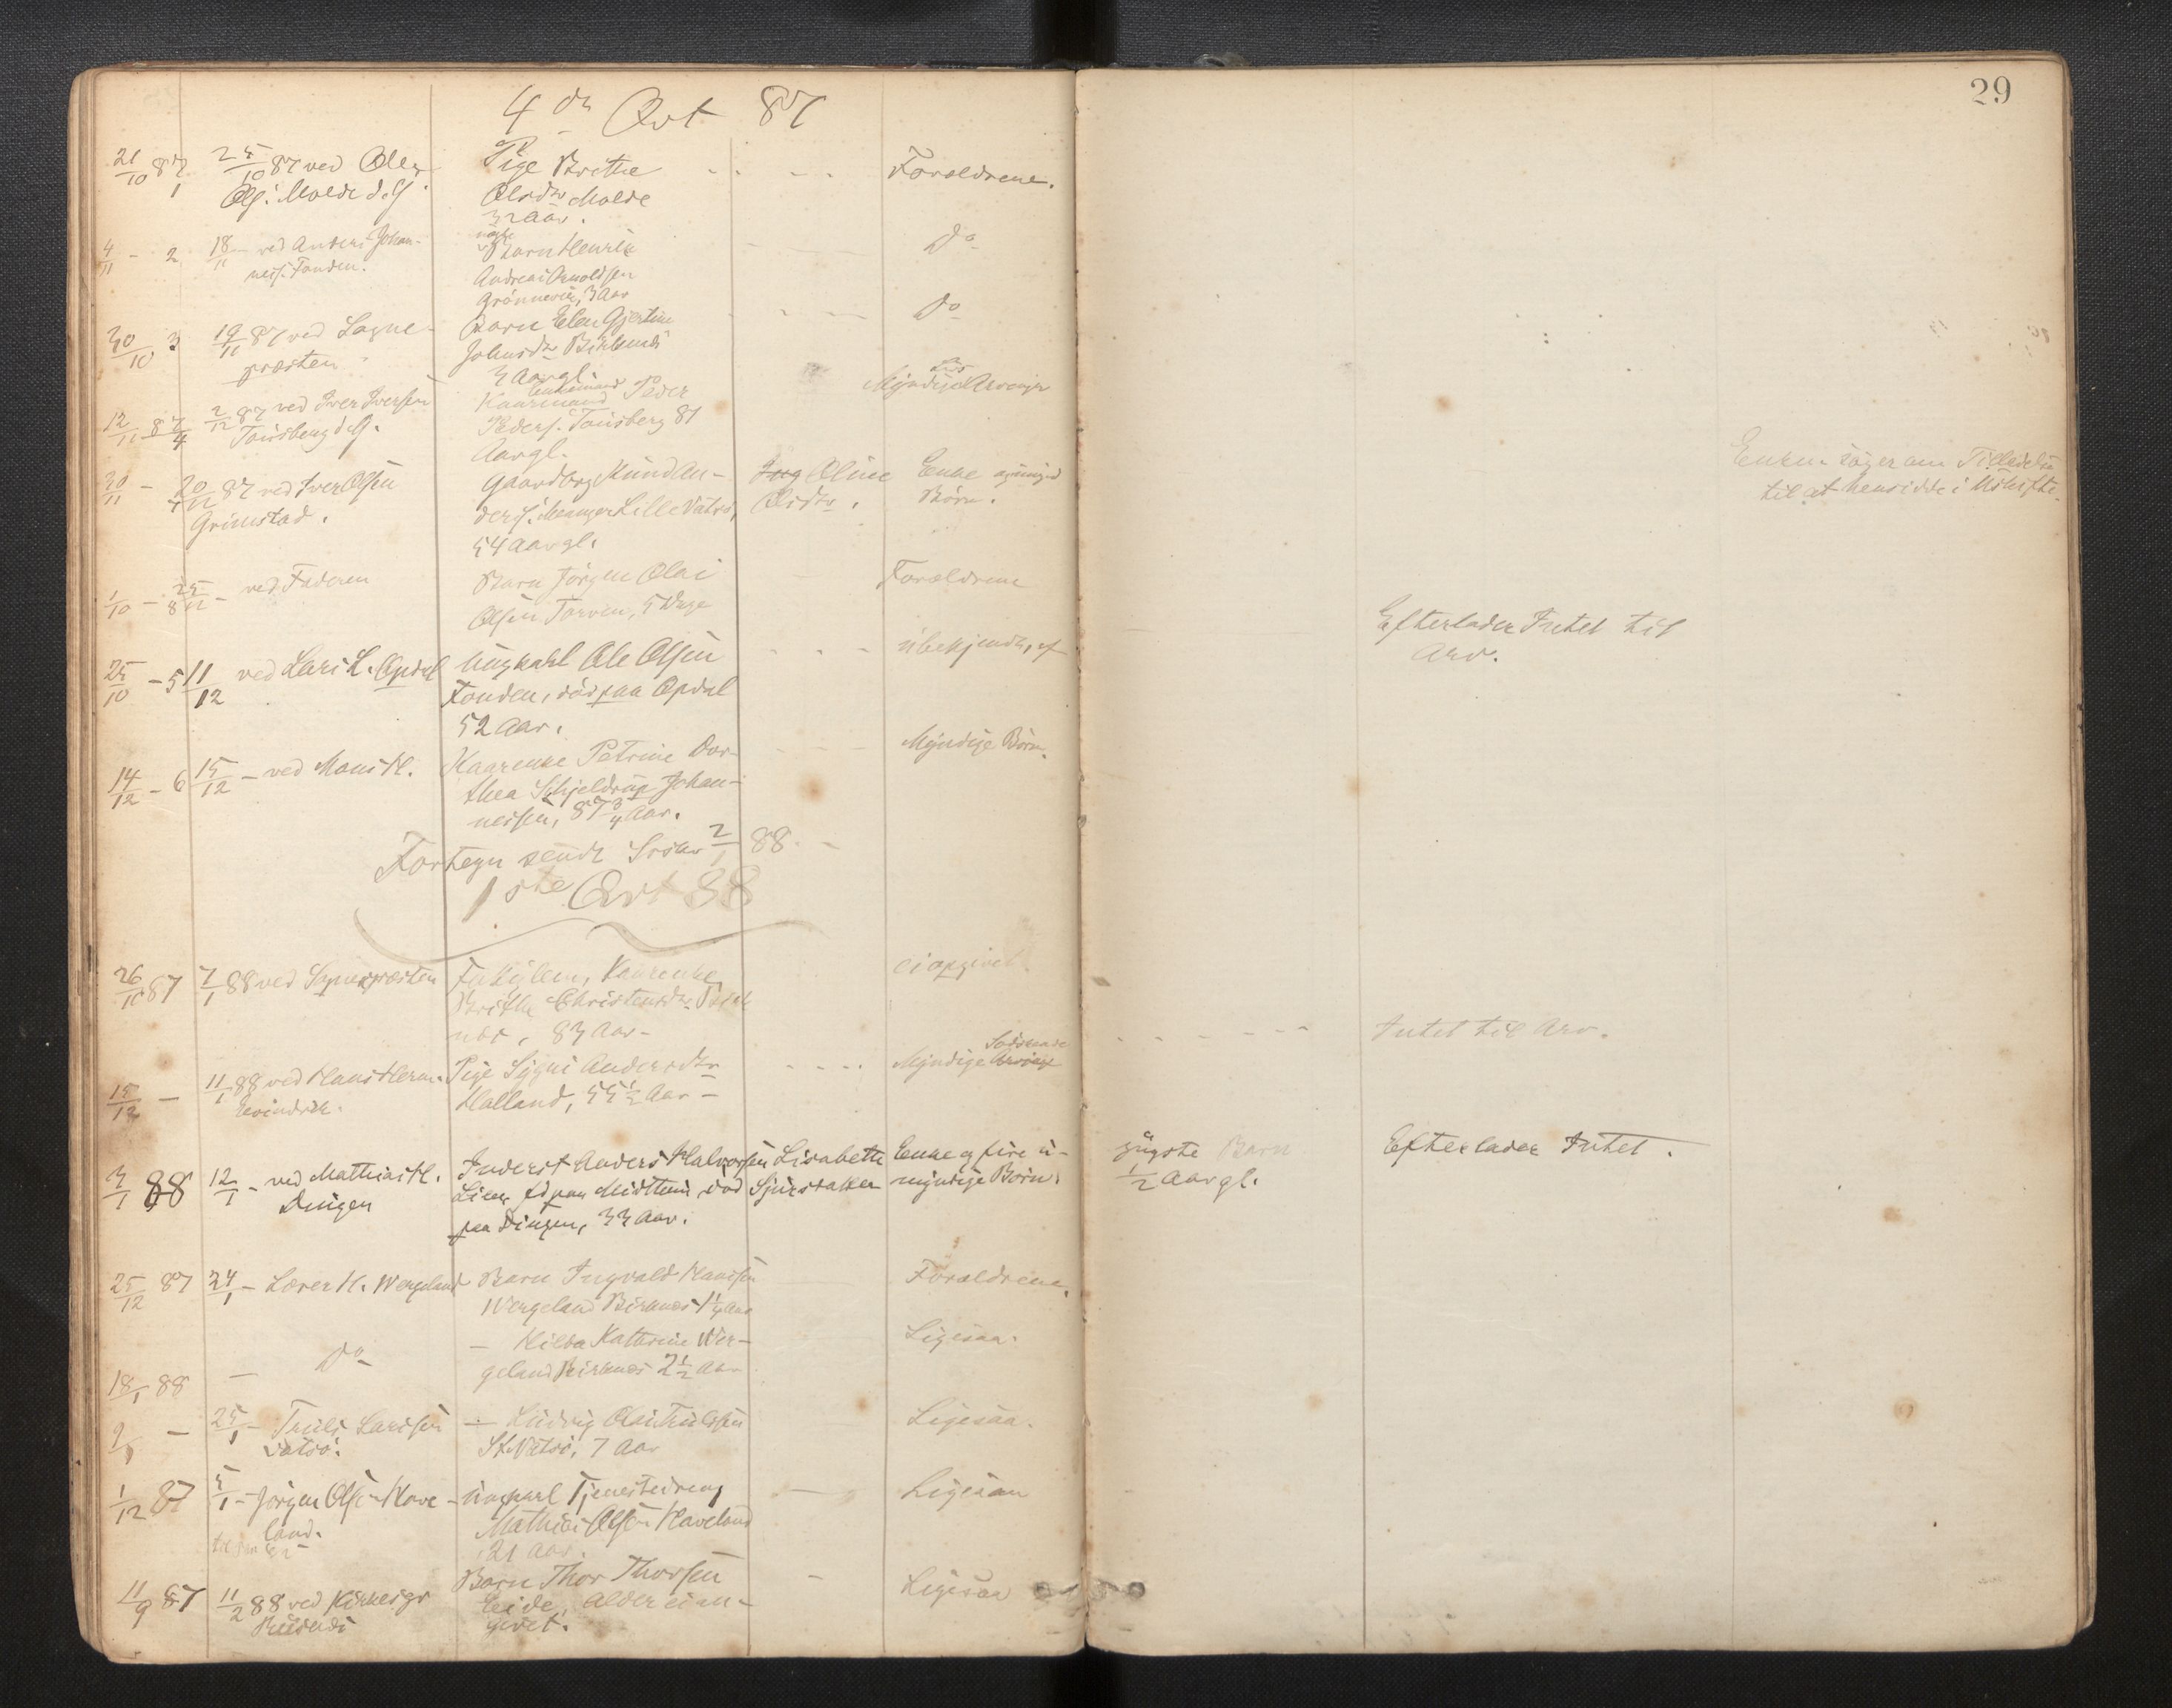 29
4de Qvt 87
21/10 87 1
25/10 87 ved Ole
Ols. Molde d. G.
Pige Brithe
Olsdtr Molde
32 Aar.
Forældrene.
4/11 - 2
18/11 - ved Anders Johan-
ness. Fonden.
Barn Henrik
Andreas Arnoldsen
Grönnevik, 3 Aar
Do
30/10 3
19/11 87 ved Sogne-
præsten
Barn Elen Gjertine
Johnsdtr
3 Aargl.
Do
12/11 87 4
2/12 87 ved Iver Iversen
Tonsberg d. G.
Enkemand
Kaarmand Peder
Peders. Tonsberg 81
Aargl.
Myndige Arvinger
30/11 -
20/12 87 ved Iver Olsen
Grimstad.
Gaardbrg Mund An-
ders. Lille Vatsö,
54 Aargl.
Oline
Olsdtr.
Enke og
Börn.
Enken söger om Tilladelse
til at hensidde i Uskifte.
1/10 -
ved Faderen
Barn Jörgen Olai
Olsen Torven, 5 Dage
Forældrene
Efterlader Intet til
Arv.
25/10 - 5
11/12 ved Lars L. Opdal
Ungkarl Ole Olsen
Fonden, död paa Opdal
52 Aar.
ubekjendt,
14/12 - 6
15/12 - ved Mons H.
Kaarenke Petrine Dor-
thea Schjeldrup Johan-
nessen, 87 3/4 Aar.
Myndige Börn.
Fortegn sendt Sorskr 2/1 88. -
1ste Qvt 88
26/10 87
7/1 88 ved Sognepræsten
Kaarenke
Brithe Christensdtr
83 Aar -
ei opgivet
Intet til Arv.
15/12 -
11/1 88 ved Hans Herm.
Pige Sygni Andersdtr
Halland, 55 1/2 Aar -
Södskende
Myndige Arvinger
3/1 88
12/1 - ved Mathias H.
Dingen
Inderst Anders Halvorsen
Lien, död
paa Dingen, 33 Aar.
Lisabeth
Sjurstatter
Enke og fire u-
myndige Börn.
yngste Barn
1/2 Aargl.
Efterlader Intet.
25/12 87
24/1 - Lærer H. Wergeland
Barn Ingvald Hansen
Wergeland Birknes 1 1/4 Aar
Forældrene.
18/1 88
- Do
- Hilda Kathrine Wer-
geland Birknes 2 1/2 Aar
Ligesaa.
2/1 -
25/1 - Truls Larssen
Vatsö.
- Ludvig Olai Trulssen
St. Vatsö, 7 Aar
Ligesaa.
1/12 87
5/1 - Jörgen Olsen Have-
land.
Ungkarl Tjenestedreng
Mathias Olsen Haveland
21 Aar.
Ligesaa
11/9 87
11/2 88 ved Kirkesgr
Barn Thor Thorsen
Eide, Alder ei an-
givet.
Ligesaa